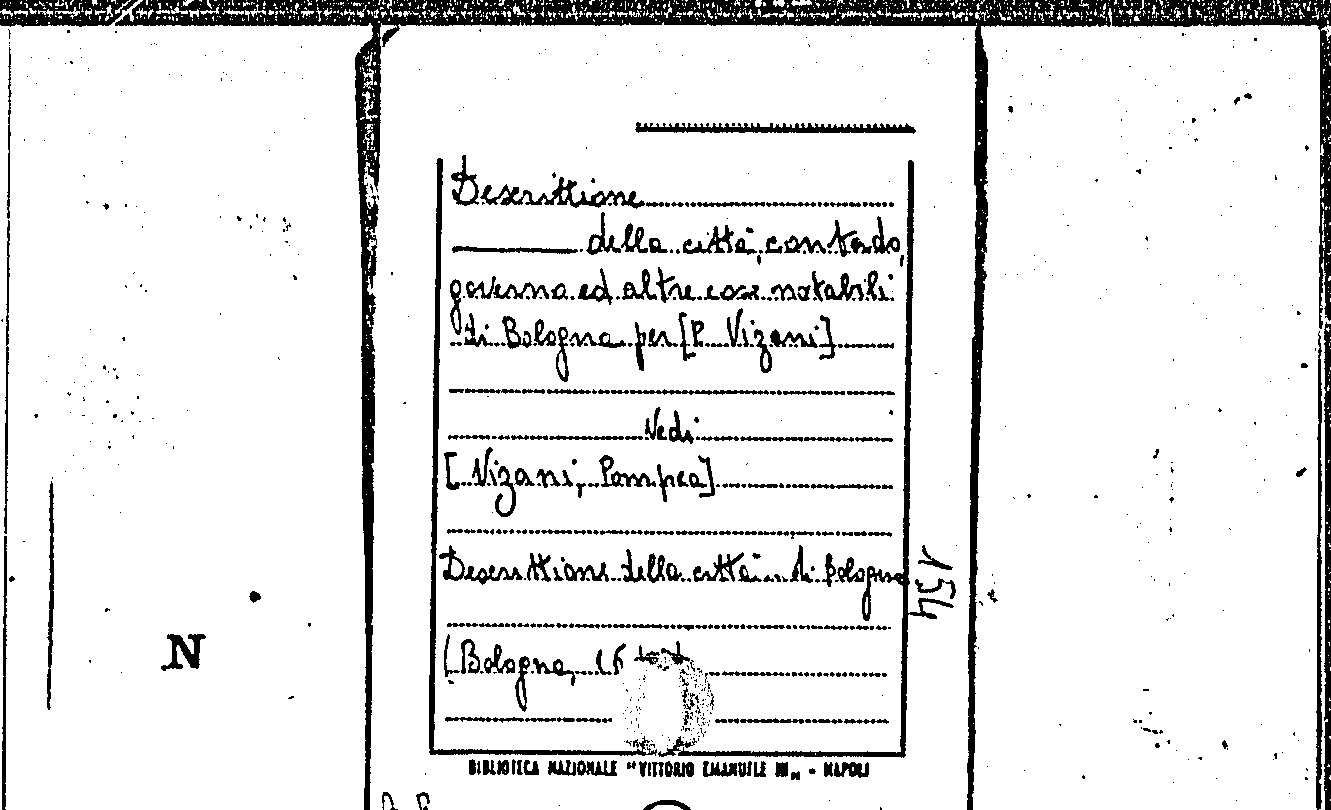 Descrittione
della città, contado,
governo ed altre cose notabili
di Bologna per [P. Vizani]
Vedi
[Vizani, Pompeo]
Descrittione della città... di Bologna
(Bologna,
154
N
BIBLIOTECA NAZIONALE "VITTORIO EMANUELE III" - NAPOLI